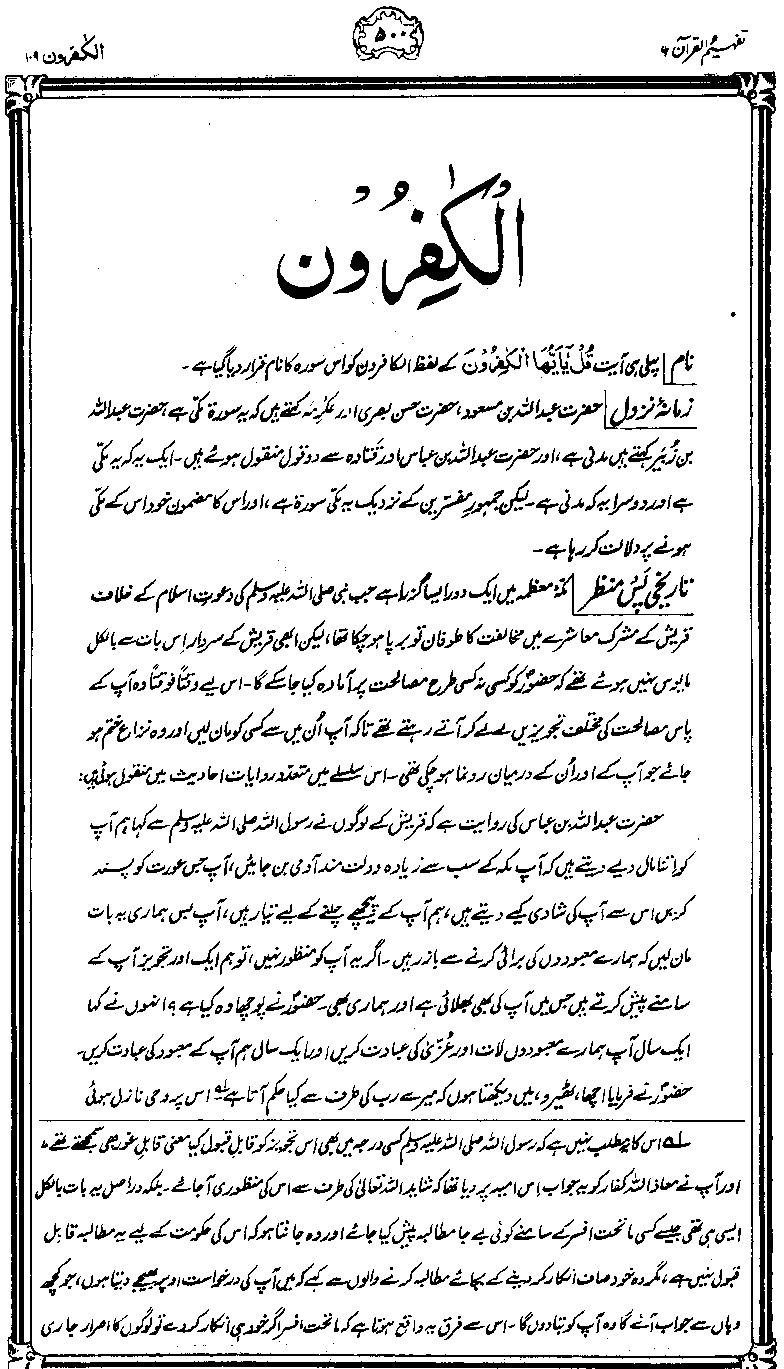 تفہیم القرآن ۶
۵۰۰
الکٰفرون ۱۰۹
الْکٰفِرُوْن
نام پہلی ہی آیت قُلْ یٰٓاَیُّھَا الْکٰفِرُوْنَ کے لفظ الکافرون کو اس سورہ کا نام قرار دیا گیا ہے۔
زمانۂ نزول حضرت عبداللہ بن مسعود، حضرت حسن بصری اور عکرمہ کہتے ہیں کہ یہ سورۃ مکی ہے، حضرت عبداللہ
بن زُبیر کہتے ہیں مدنی ہے، اور حضرت عبداللہ بن عباس اور قَتادہ سے دو قول منقول ہوئے ہیں۔ ایک یہ کہ یہ مکی
ہے اور دوسرا یہ کہ مدنی ہے۔ لیکن جمہور مفسرین کے نزدیک یہ مکی سورۃ ہے، اور اس کا مضمون خود اس کے مکی
ہونے پر دلالت کر رہا ہے۔
تاریخی پس منظر مکۂ معظمہ میں ایک دور ایسا گزرا ہے جب نبی صلی اللہ علیہ وسلم کی دعوتِ اسلام کے خلاف
قریش کے مشرک معاشرے میں مخالفت کا طوفان تو برپا ہو چکا تھا، لیکن ابھی قریش کے سردار اِس بات سے بالکل
مایوس نہیں ہوئے تھے کہ حضورؐ کو کسی نہ کسی طرح مصالحت پر آمادہ کیا جا سکے گا۔ اس لیے وقتاً فوقتاً وہ آپ کے
پاس مصالحت کی مختلف تجویزیں لے لے کر آتے رہتے تھے تاکہ آپ اُن میں سے کسی کو مان لیں اور وہ نزاع ختم ہو
جائے جو آپ کے اور اُن کے درمیان رونما ہو چکی تھی۔ اس سلسلے میں متعدد روایات احادیث میں منقول ہوئی ہیں:
حضرت عبداللہ بن عباس کی روایت ہے کہ قریش کے لوگوں نے رسول اللہ صلی اللہ علیہ وسلم سے کہا ہم آپ
کو اتنا مال دیے دیتے ہیں کہ آپ مکہ کے سب سے زیادہ دولت مند آدمی بن جائیں، آپ جس عورت کو پسند
کریں اس سے آپ کی شادی کیے دیتے ہیں، ہم آپ کے پیچھے چلنے کے لیے تیار ہیں، آپ بس ہماری یہ بات
مان لیں کہ ہمارے معبودوں کی برائی کرنے سے باز رہیں۔ اگر یہ آپ کو منظور نہیں، تو ہم ایک اور تجویز آپ کے
سامنے پیش کرتے ہیں جس میں آپ کی بھی بھلائی ہے اور ہماری بھی۔ حضورؐ نے پوچھا وہ کیا ہے؟ انہوں نے کہا
ایک سال آپ ہمارے معبودوں لات اور عُزّیٰ کی عبادت کریں اور ایک سال ہم آپ کے معبود کی عبادت کریں۔
حضورؐ نے فرمایا اچھا، ٹھیرو، میں دیکھتا ہوں کہ میرے رب کی طرف سے کیا حکم آتا ہے۱؎ اس پر وحی نازل ہوئی
۱؎ اس کا یہ مطلب نہیں ہے کہ رسول اللہ صلی اللہ علیہ وسلم کسی درجہ میں بھی اس تجویز کو قابلِ قبول کیا معنی قابلِ غور بھی سمجھتے تھے،
اور آپ نے معاذ اللہ کفار کو یہ جواب اس امید پر دیا تھا کہ شاید اللہ تعالیٰ کی طرف سے اس کی منظوری آ جائے۔ بلکہ دراصل یہ بات بالکل
ایسی ہی تھی جیسے کسی ماتحت افسر کے سامنے کوئی بے جا مطالبہ پیش کیا جائے اور وہ جانتا ہو کہ اس کی حکومت کے لیے یہ مطالبہ قابلِ
قبول نہیں ہے، مگر وہ خود صاف انکار کر دینے کے بجائے مطالبہ کرنے والوں سے کہے کہ میں آپ کی درخواست اوپر بھیجے دیتا ہوں، جو کچھ
وہاں سے جواب آئے گا وہ آپ کو بتا دوں گا۔ اس سے فرق یہ واقع ہوتا ہے کہ ماتحت افسر اگر خود ہی انکار کر دے تو لوگوں کا اصرار جاری